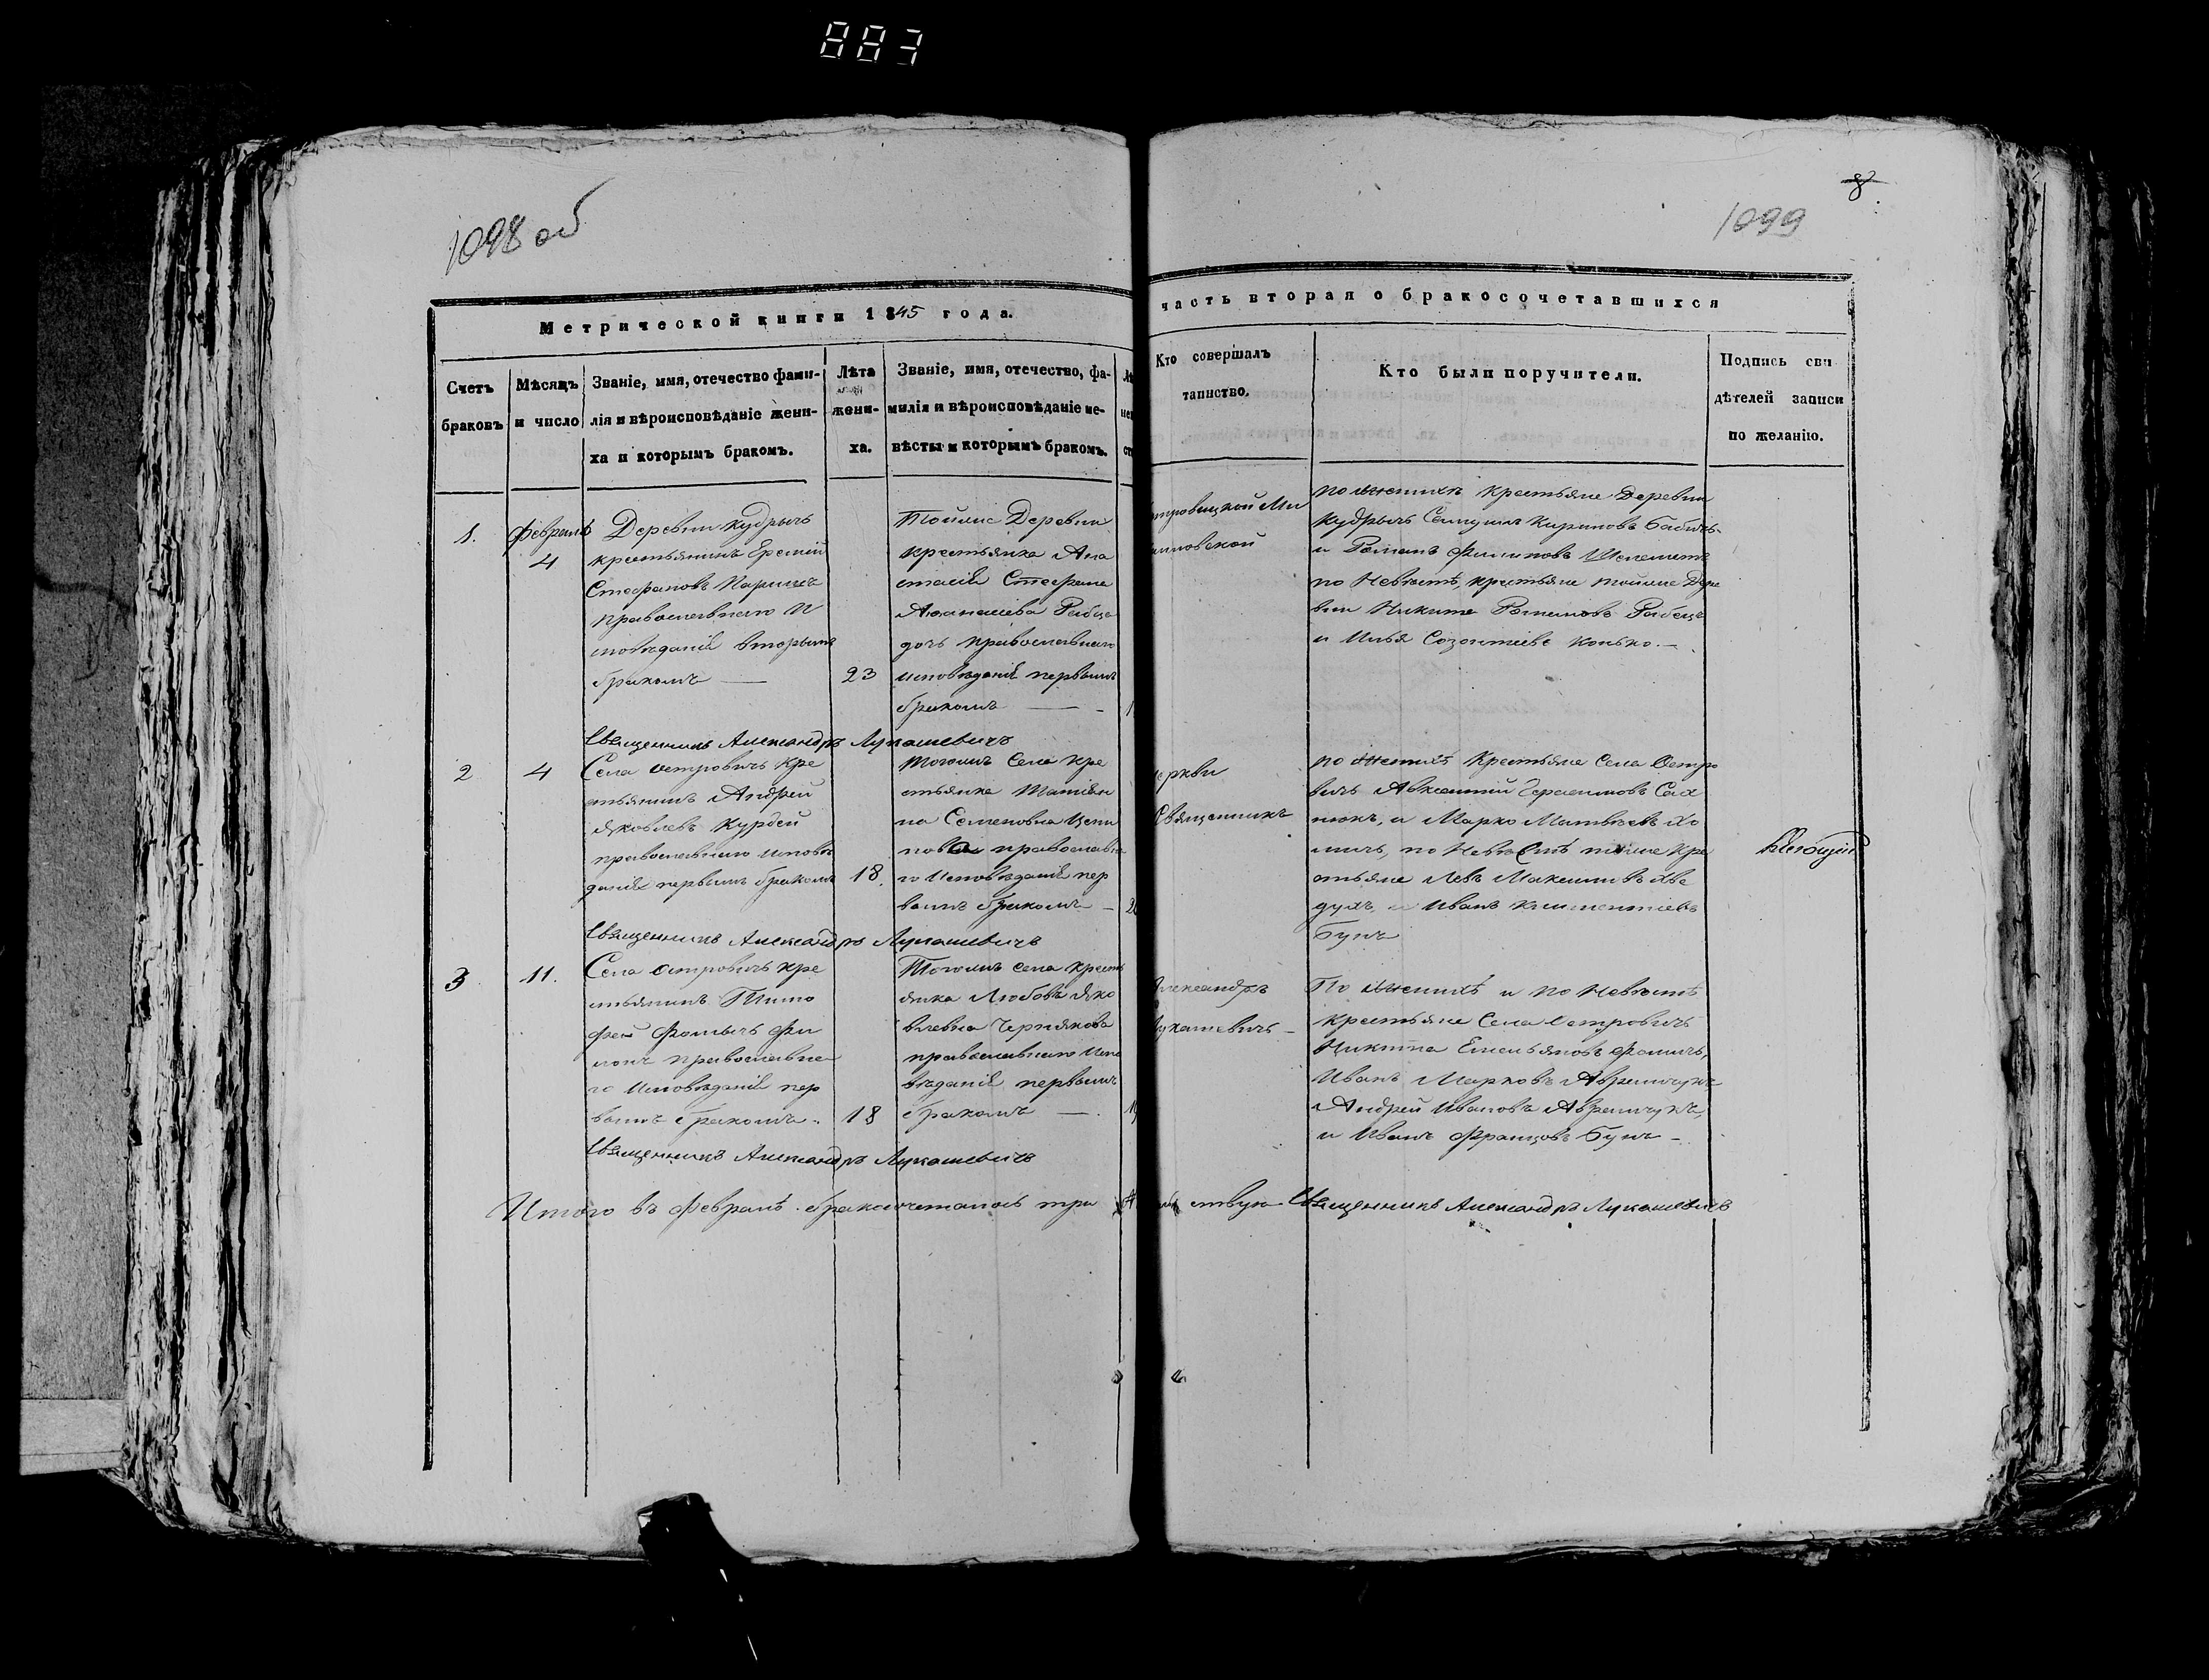 883
1098 об
8
1099
Метрической книги 1845 года.
часть вторая о бракосочетавшихся
Счетъ браковъ
Мѣсяцъ и число
Званіе, имя, отечество фами-
лія и вѣроисповѣданіе жени-
ха и которымъ бракомъ.
Лѣта
жени-
ха.
Званіе, имя, отечество, фа-
милія и вѣроисповѣданіе не-
вѣсты и которымъ бракомъ.
Кто совершалъ
таинство.
Кто были поручители.
Подпись сви
дѣтелей записи
по желанію.
1.
Февраля
4
Деревни Кудрычъ
крестьянинъ Еремій
Стефановъ
православнаго И
сповѣданія вторымъ
бракомъ —
23
Тойже Деревни
крестьянка Ана
стасія Стефана
дочь православнаго
исповѣданія первымъ
бракомъ —
тровецкой Ми
овской
по женихѣ крестьяне Деревни
Кудрычъ Кириловъ Бабичъ
и Романъ Филиповъ Шелометъ
по Невѣстѣ, крестьяне тойже Дере
вни Никита Романовъ Рабецъ
и Илья Созонтіевъ Конько. —
Священникъ Александръ Лукашевичъ
2
4
Села Островичъ кре
стьянинъ Андрей
Яковлевъ Курдей
православнаго исповѣ
данія первымъ бракомъ
18.
Тогожъ Села кре
стьянка Татіян
на Семеновна
православна
го Исповѣданія пер
вымъ бракомъ —
еркви
Священникъ
по женихѣ Крестьяне Села Остро
вичъ Авксентій Герасимовъ
и Марко Матвѣевъ Хо
мичъ, по Невѣстѣ тѣже Кре
стьяне Левъ Максимовъ
и Иванъ Климентіевъ
Бунъ
Священникъ Александръ Лукашевичъ
3
11.
Села Островичъ кре
стьянинъ Тимо
фей Фомичъ
православна
го Исповѣданія пер
вымъ бракомъ.
18
Тогожъ села крест
янка Любовь Яко
влевна Чернякова
православнаго Испо
вѣданія первымъ
бракомъ —.
лександръ
укашевичъ —
По Женихѣ и по Невѣстѣ
крестьяне Села Островичъ
Никита Емельяновъ Фомичъ,
Иванъ Марковъ Аврамчукъ
Андрей Ивановъ Аврамчукъ,
и Иванъ Францовъ Бунъ —
Священникъ Александръ Лукашевичъ
Итого въ Февралѣ бракосочеталось три
ствую Священникъ Александръ Лукашевичъ